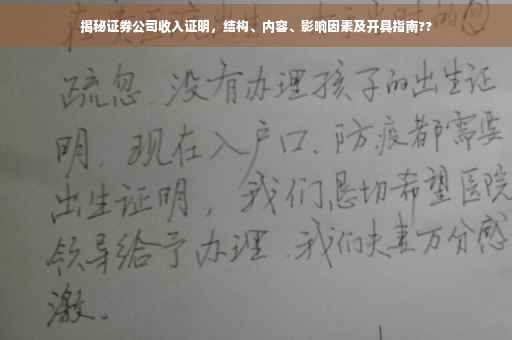 揭秘证券公司收入证明，结构、内容、影响因素及开具指南??
的
疏忽、没有办理孩子的出生证
明、现在入户口、防疫都需要
出生证明，我们恳切希望医院
领导给予办理、我们夫妻万分感
激。